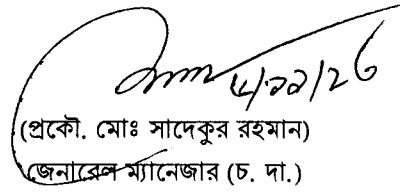 (প্রকৌ. মোঃ সাদেকুর রহমান)
জেনারেল ম্যানেজার (চ. দা.)